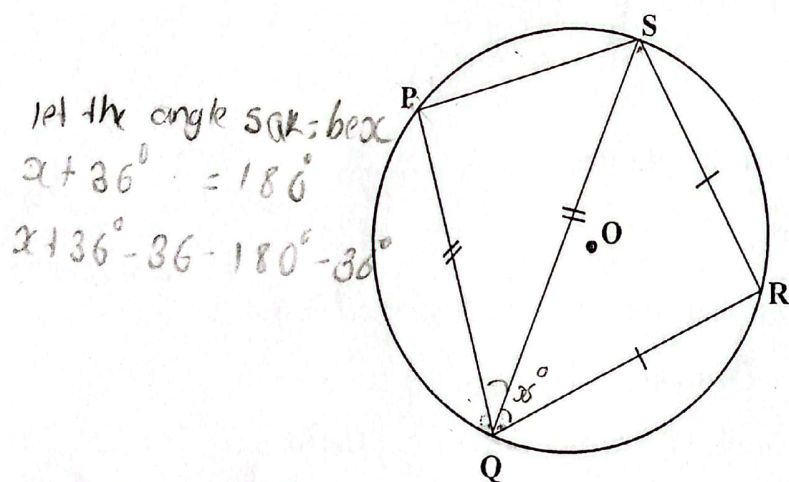 S
P
let the angle SQR = be x
x + 36° = 180°
x + 36° - 36 - 180° - 36°
O
R
Q